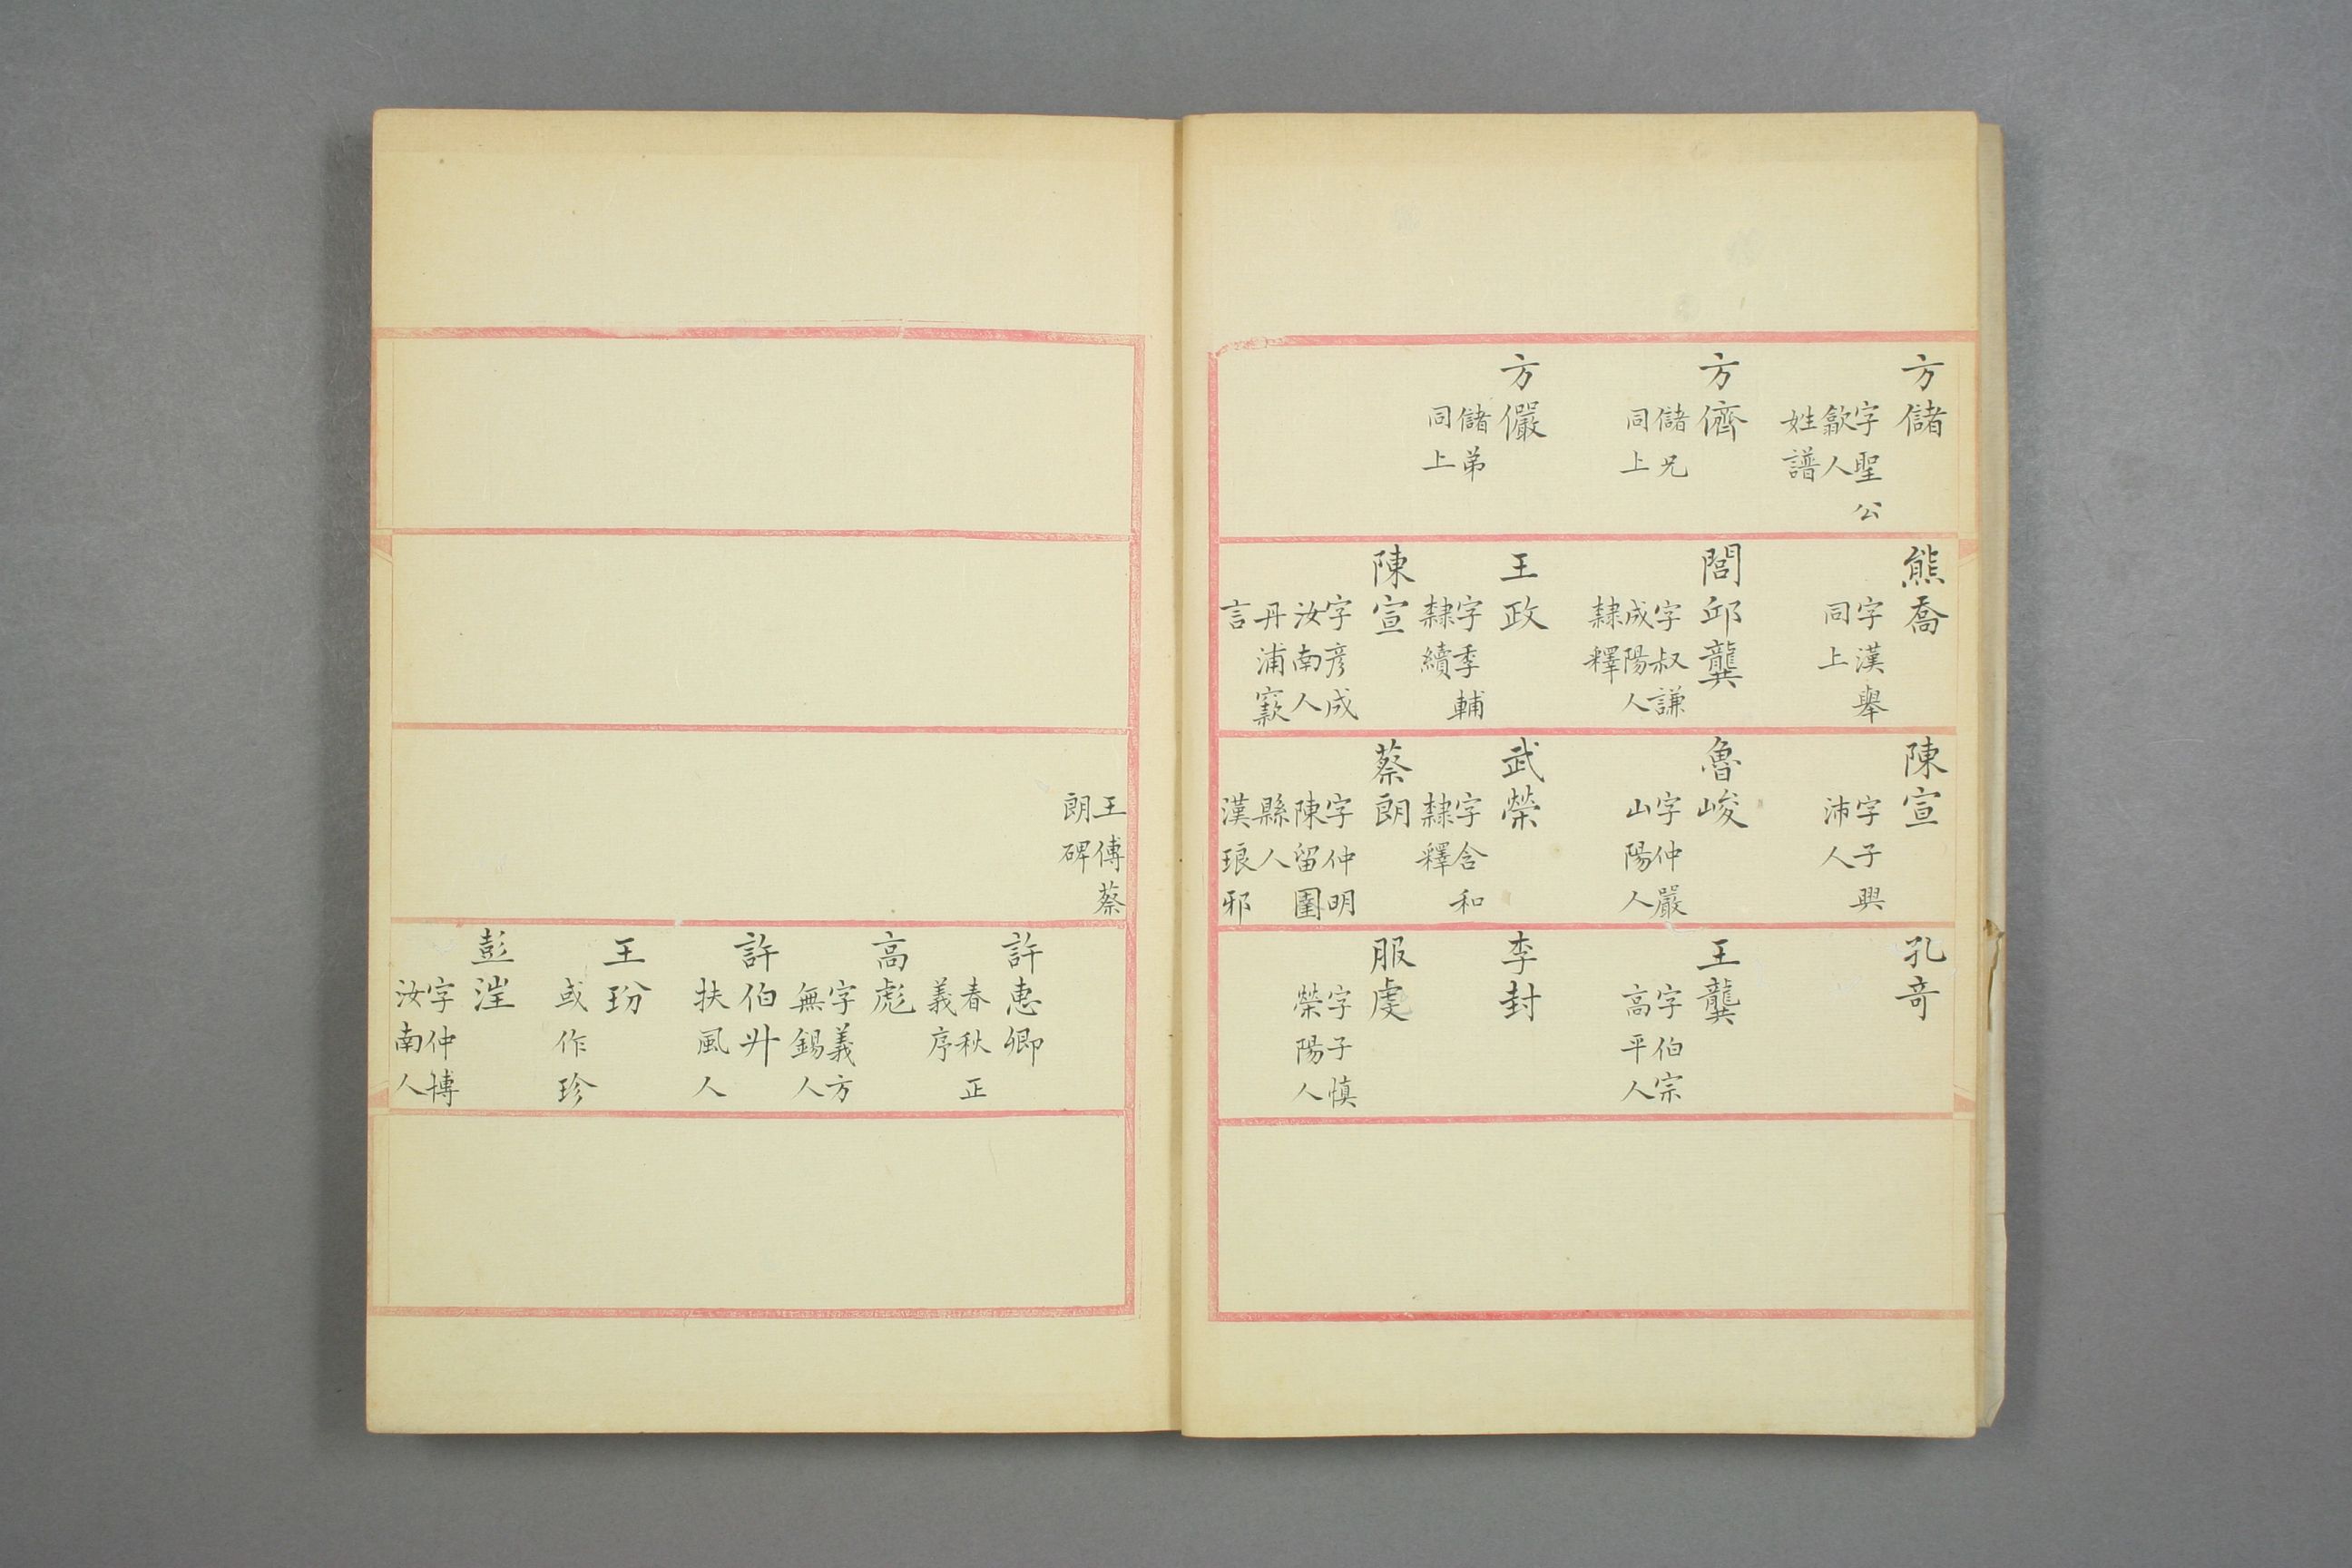 方儲
字聖公
歙人
姓譜
方儕
儲兄
同上
方儼
儲弟
同上
熊喬
字漢舉
同上
閭邱龔
字叔謙
成陽人
隸釋
王政
字季輔
隸續
陳宣
字彦成
汝南人
丹浦窾
言
陳宣
字子興
沛人
魯峻
字仲嚴
山陽人
武榮
字含和
隸釋
蔡朗
字仲明
陳留圉
縣人
漢琅邪
孔奇
王龔
字伯宗
高平人
李封
服虔
字子慎
榮陽人
王傅蔡
朗碑
許惠卿
春秋正
義序
高彪
字義方
無錫人
許伯升
扶風人
王玢
或作珍
彭
字仲博
汝南人